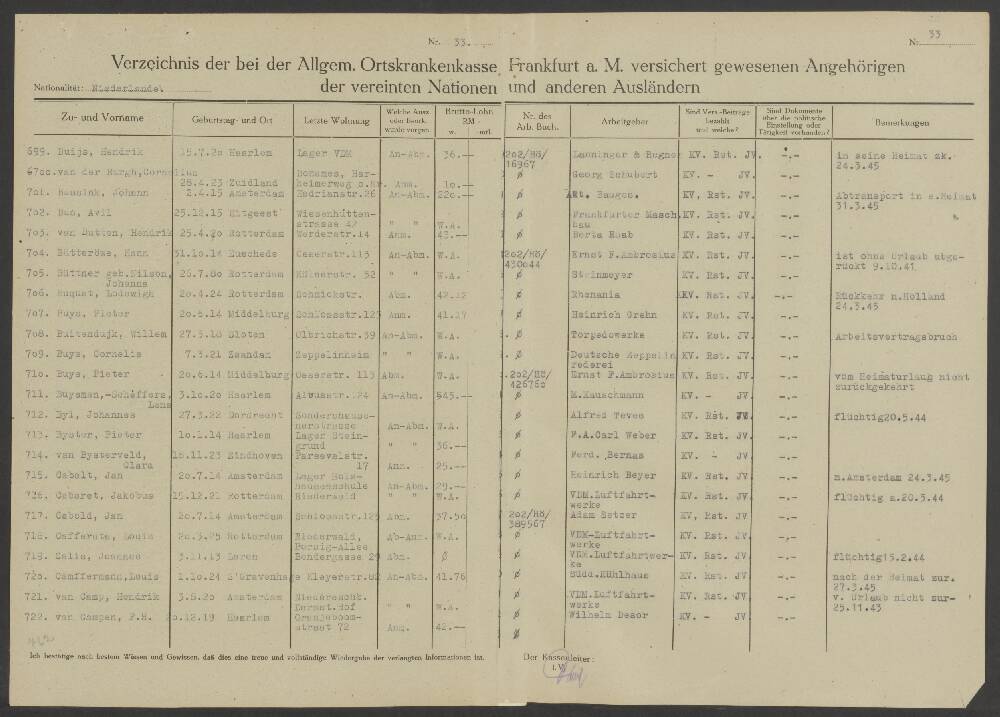 Nr. 33.
Nr. 33
Verzeichnis der bei der Allgem. Ortskrankenkasse Frankfurt a. M. versichert gewesenen Angehörigen
Nationalität: Niederlande. der vereinten Nationen und anderen Ausländern
Zu- und Vorname Geburtstag- und Ort Letzte Wohnung Welche Ausw. oder Beurk. wurde vorgen. Brutto-Lohn RM - w. mtl. Nr. des Arb. Buch. Arbeitgeber Sind Vers.-Beiträge bezahlt und welche? Sind Dokumente über die politische Einstellung oder Tätigkeit vorhanden? Bemerkungen
699. Buijs, Hendrik 15.7.20 Haarlem Lager VDM An-Abm. 36.-- 202/HÖ/ Launinger & Regner KV. Rst. JV. -.- in seine Heimat zk.
16967 24.3.45
6700.van der Burgh,Cornelius Bonames, Har- Ø Georg Schubert KV. - JV. -.-
28.4.23 Zuidland heimerweg Anm. 10.--
701. Johann 2.4.15 Amsterdam Hadrianstr.26 An-Abm. 220.-- Ø Bauges. KV, Rst, JV, -.- Abtransport in s.Heimat
31.3.45
702. Bus, Avil 25.12.15 Uitgeest Wiesenhütten- Ø Frankfurter Masch. KV, Rst. JV. -.-
strasse 42 " " W.A. bau
703. van Butten, Hendrik 25.4.20 Rotterdam Werderstr.14 Anm. 43.-- Ø Berta Raab KV. Rst. JV. -.-
704. Bütterböse, Hans 31.10.14 Enschede Oeserstr.113 An-Abm. W.A. 202/HÖ/ Ernst F.Ambrosius KV. Rst. JV. -.- ist ohne Urlaub abge-
430044 rückt 9.10.41
705. Büttner geb.Nilson, 26.7.80 Rotterdam Kölnerstr. 32 " " W.A. Ø Steinmeyer KV. Rst. JV. -.-
Johanna
706. Buquat, Lodowigh 20.4.24 Rotterdam Schnickstr. Abm. 42.12 Ø Rhenania KV. Rst. JV. -.- Rückkehr n.Holland
24.3.45
707. Buys, Pieter 20.6.14 Middelburg Schlossstr.125 Anm. 41.17 Ø Heinrich Grehn KV. Rst. JV. -.-
708. Buitendujk, Willem 27.5.18 Sloten Olbrichstr.39 An-Abm. W.A. Ø Torpedowerke KV. Rst. JV. -.- Arbeitsvertragsbruch
709. Buys, Cornelis 7.3.21 Zaandam Zeppelinheim " " W.A. Ø Deutsche Zeppelin KV. Rst. JV. -.-
rederei
710. Buys, Pieter 20.6.14 Middelburg Oeserstr. 113 Abm. W.A. 202/HÖ/ Ernst F.Ambrosius KV. Rst. JV. -.- vom Heimaturlaub nicht
426760 zurückgekehrt
711. Buysman,-Schäffers, 3.10.20 Haarlem 24 An-Abm. 545.-- Ø M.Hauschmann KV. - JV. -.-
712. Byl, Johannes 27.3.22 Dordrecht Sondershause- Ø Alfred Teves KV. Rst. JV. -.- flüchtig20.5.44
nerstrasse An-Abm. W.A.
713. Byster, Pieter 10.1.14 Haarlem Lager Stein- Ø F.A.Carl Weber KV. Rst. JV. -.-
grund " " 36.--
714. van Bysterveld, 18.11.23 Eindhoven Parsevalstr. Ø Ferd. Bernas KV. - JV. -.-
Clara 17 Anm. 25.--
715. Cabalt, Jan 20.7.14 Amsterdam Lager Holz- Ø Heinrich Beyer KV. Rst. JV. -.- n.Amsterdam 24.3.45
hausenschule An-Abm. 29.--
716. Cabaret, Jakobus 15.12.21 Rotterdam Niederwald " " W.A. Ø VDM.Luftfahrt- KV. Rst. JV. -.- flüchtig a.20.3.44
werke
717. Cabold, Jan 20.7.14 Amsterdam Schlossstr.125 Abm. 37.50 202/HÖ/ Adam Setzer KV, Rst. JV -.-
389567
718. Cafferate, Louis 20.3.25 Rotterdam Niederwald, Ab-Anm. W.A. Ø VDM-Luftfahrt- KV. Rst. JV. -.-
Borsig-Allee werke
719. Calis, Joannes 3.11.13 Laren Bendergasse 29 Abm. Ø Ø VDM.Luftfahrtwer- KV. Rst. JV. -.- flüchtig15.2.44
ke
720. Camffermann,Louis 1.10.24 S'Gravenhage Kleyerstr. An-Abm. 41.76 Ø Südd.Kühlhaus KV. Rst. JV. -.- nach der Heimat zur.
27.3.45
721. van Camp, Hendrik 3.8.20 Amsterdam Niedereschb. Ø VDM.Luftfahrt- KV. Rst. JV -.- v. Urlaub nicht zur-
" " W.A. werke 25.11.43
722. van Campen, F.H. 20.12.19 Haarlem Oranjeboom- Ø Wilhelm Desor KV. - JV -.-
strasse 72 Anm. 42.--
Ø
Ich bestätige nach bestem Wissen und Gewissen, daß dies eine treue und vollständige Wiedergabe der verlangten Informationen ist. Der Kassenleiter:
i.V.